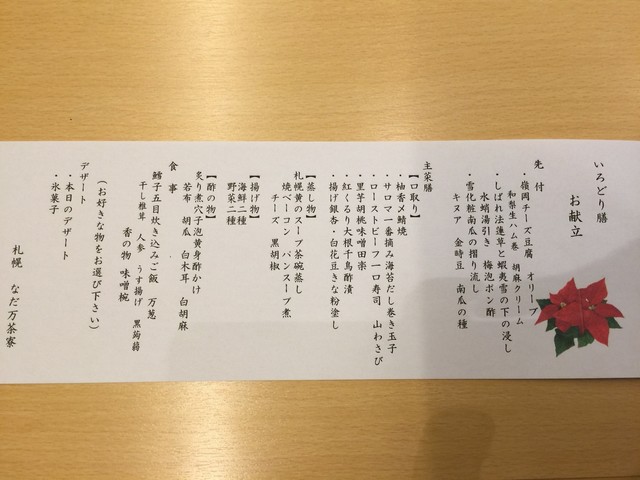 いろどり膳
お献立
先付
・嶺岡チーズ豆腐 オリーブ
和梨生ハム巻 胡麻クリーム
・しばれ法蓮草と蝦夷雪の下の浸し
水蛸湯引き 梅泡ポン酢
・雪化粧南瓜の摺り流し
キヌア 金時豆 南瓜の種
主菜膳
【口取り】
・柚香〆鯖焼
・サロマ一番摘み海苔だし巻き玉子
・ローストビーフ一口寿司 山わさび
・里芋胡桃味噌田楽
・紅くるり大根千鳥酢漬
・揚げ銀杏・白花豆きな粉塗し
【蒸し物】
札幌黄のスープ茶碗蒸し
焼ベーコン パンスープ煮
チーズ 黒胡椒
【揚げ物】
海鮮二種
野菜二種
【酢の物】
炙り煮穴子泡黄身酢かけ
若布 胡瓜 白木耳 白胡麻
食事
鱈子五目炊き込みご飯 万葱
干し椎茸 人参 うす揚げ 黒蒟蒻
香の物 味噌椀
(お好きな物をお選び下さい)
デザート
・本日のデザート
・氷菓子
札幌 なだ万茶寮